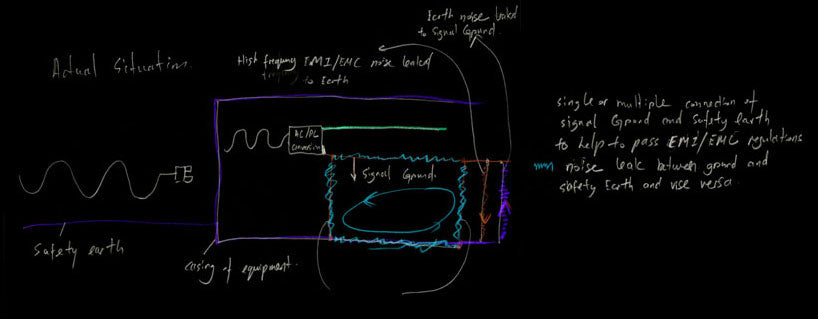 Earth noise leaked
to Signal Ground.
Actual Situation
High frequency EMI/EMC noise leaked
to Earth
AC/DC
conversion
Signal Ground.
single or multiple connection of
signal Ground and Safety earth
to help to pass EMI/EMC regulations
noise leak between ground and
safety Earth and vise versa.
Safety earth
casing of equipment.